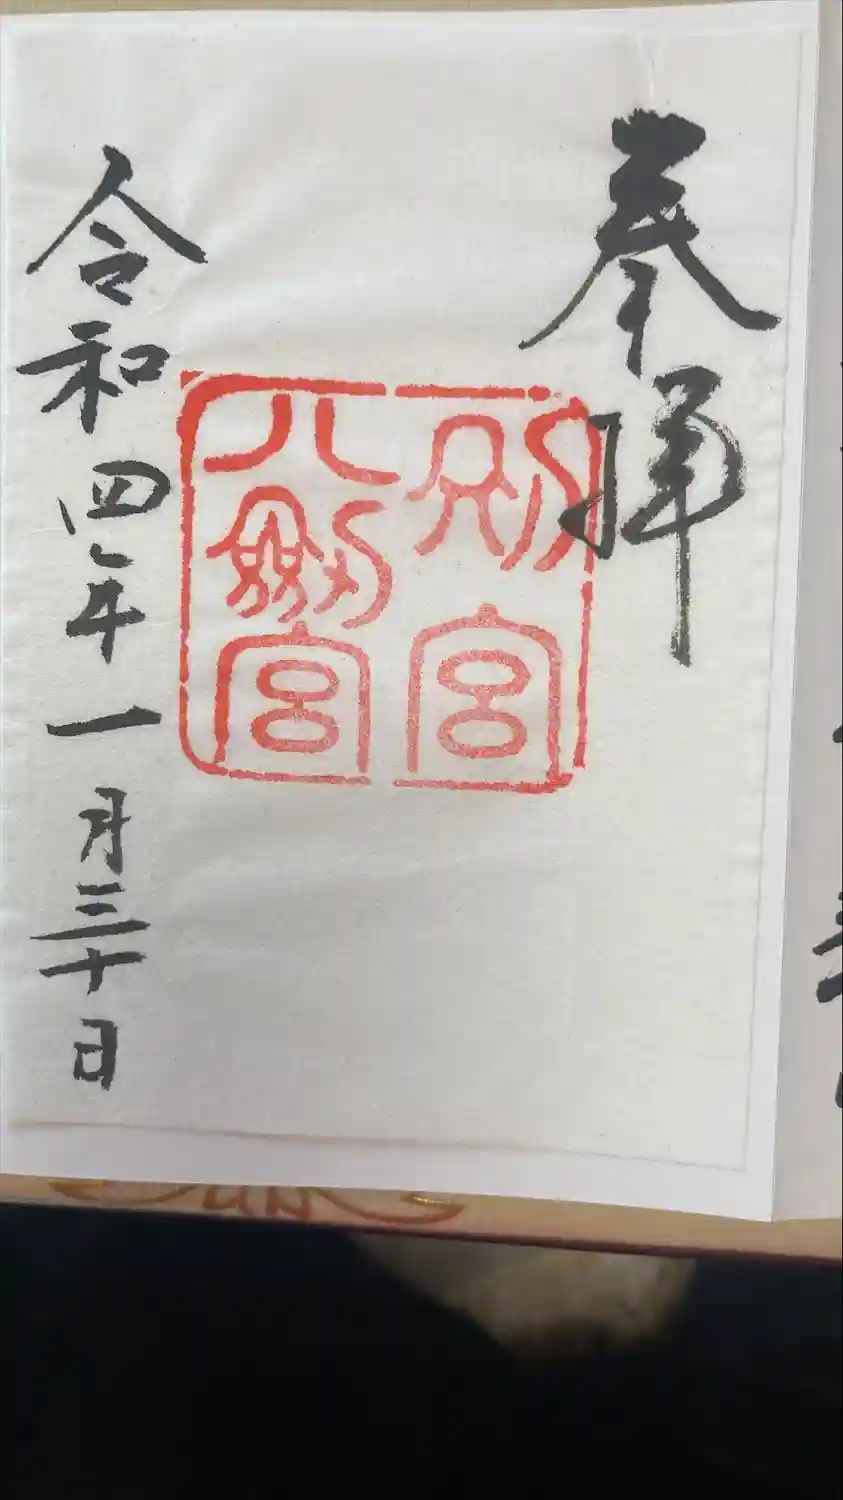 奉拝
別宮
八劔宮
令和四年一月三十日